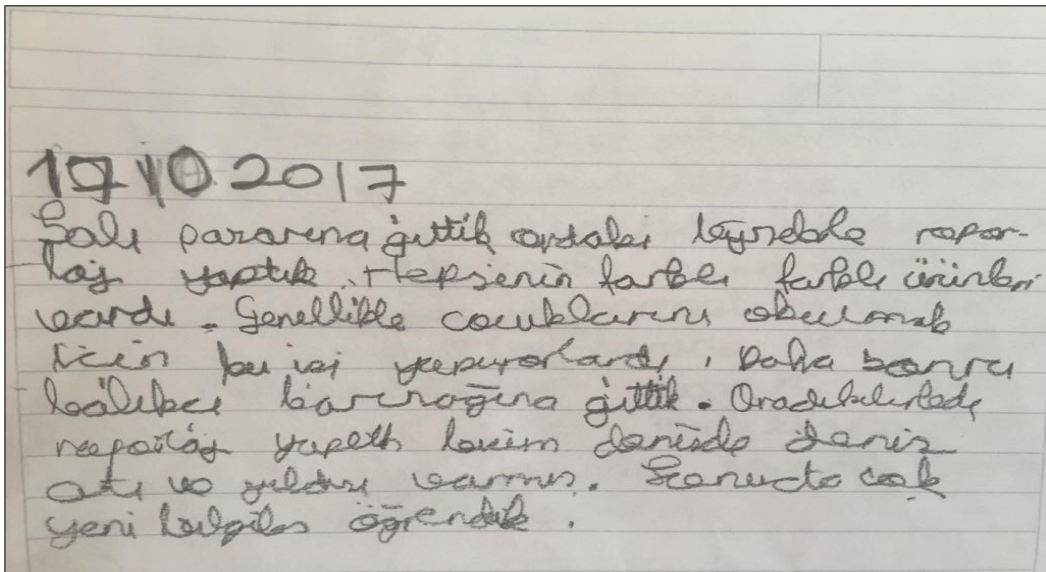 17 10 2017
Salı pazarına gittik ordaki kişilerle repor-
taj yaptık. Hepsinin farklı farklı ürünleri
vardı. Genellikle cocuklarını okutmak
icin bu işi yapıyorlardı, Daha sonra
balıkcı barınağına gittik. Oradakilerlede
reportaj yaptık bizim denizde deniz
atı ve yıldızı varmış. Sonucta cok
yeni bilgiler öğrendik.